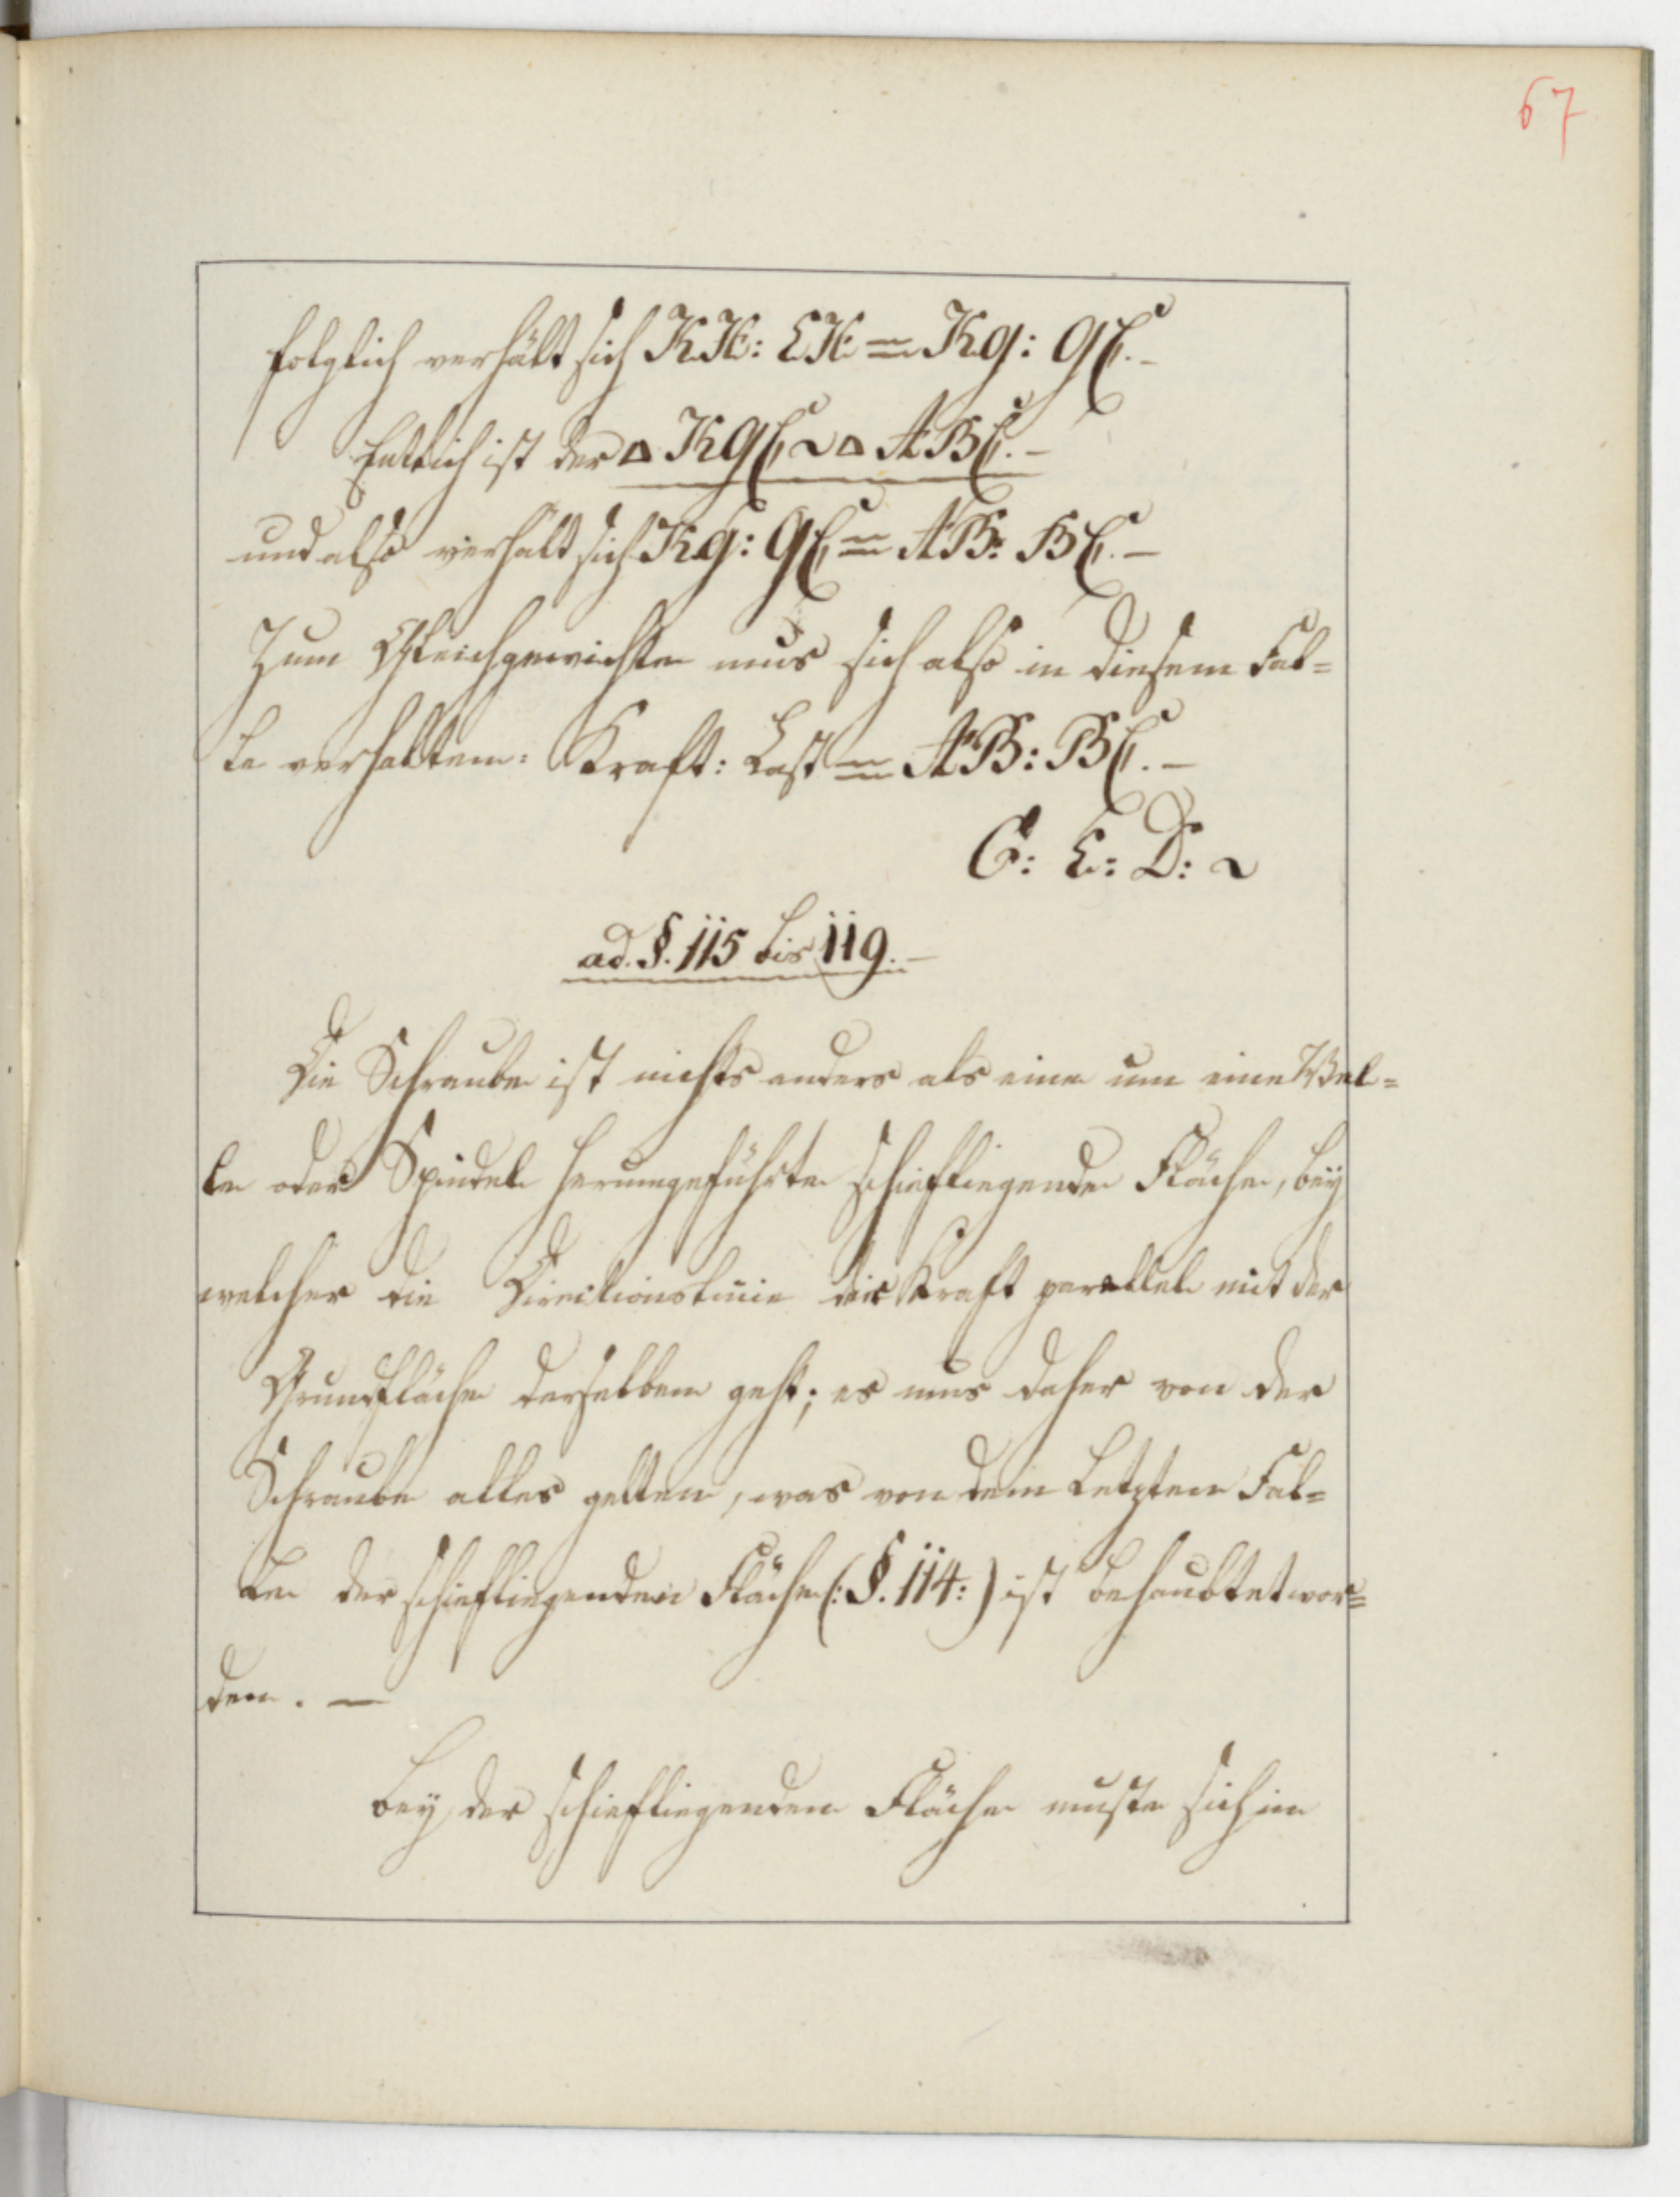 67
folglich verhält sich KH: EH = Kg: gC. –
Entlich ist der ▵ KgC ~ ▵ ABC. –
und also verhält sich Kg: gC = AB: BC. –
Zum Gleichgewichte mus sich also in diesem Fal=
le verhalten: Kraft: Last = AB: BC. –
E: D: ~
ad. §. 115 bis 119. –
Die Schraube ist nichts anders als eine um eine Wel=
le oder Spindel herumgeführte schiefliegende Fläche, bey
welcher die Direitionslinie der Kraft parallel mit der
Grundfläche derselben geht; es mus daher von der
Schraube alles gelten, was von dem Letzten Fal=
le der schiefliegenden Fläche (: §. 114: ) ist behaubtet wor=
den. –
bey der schiefliegenden Fläche muste sich im